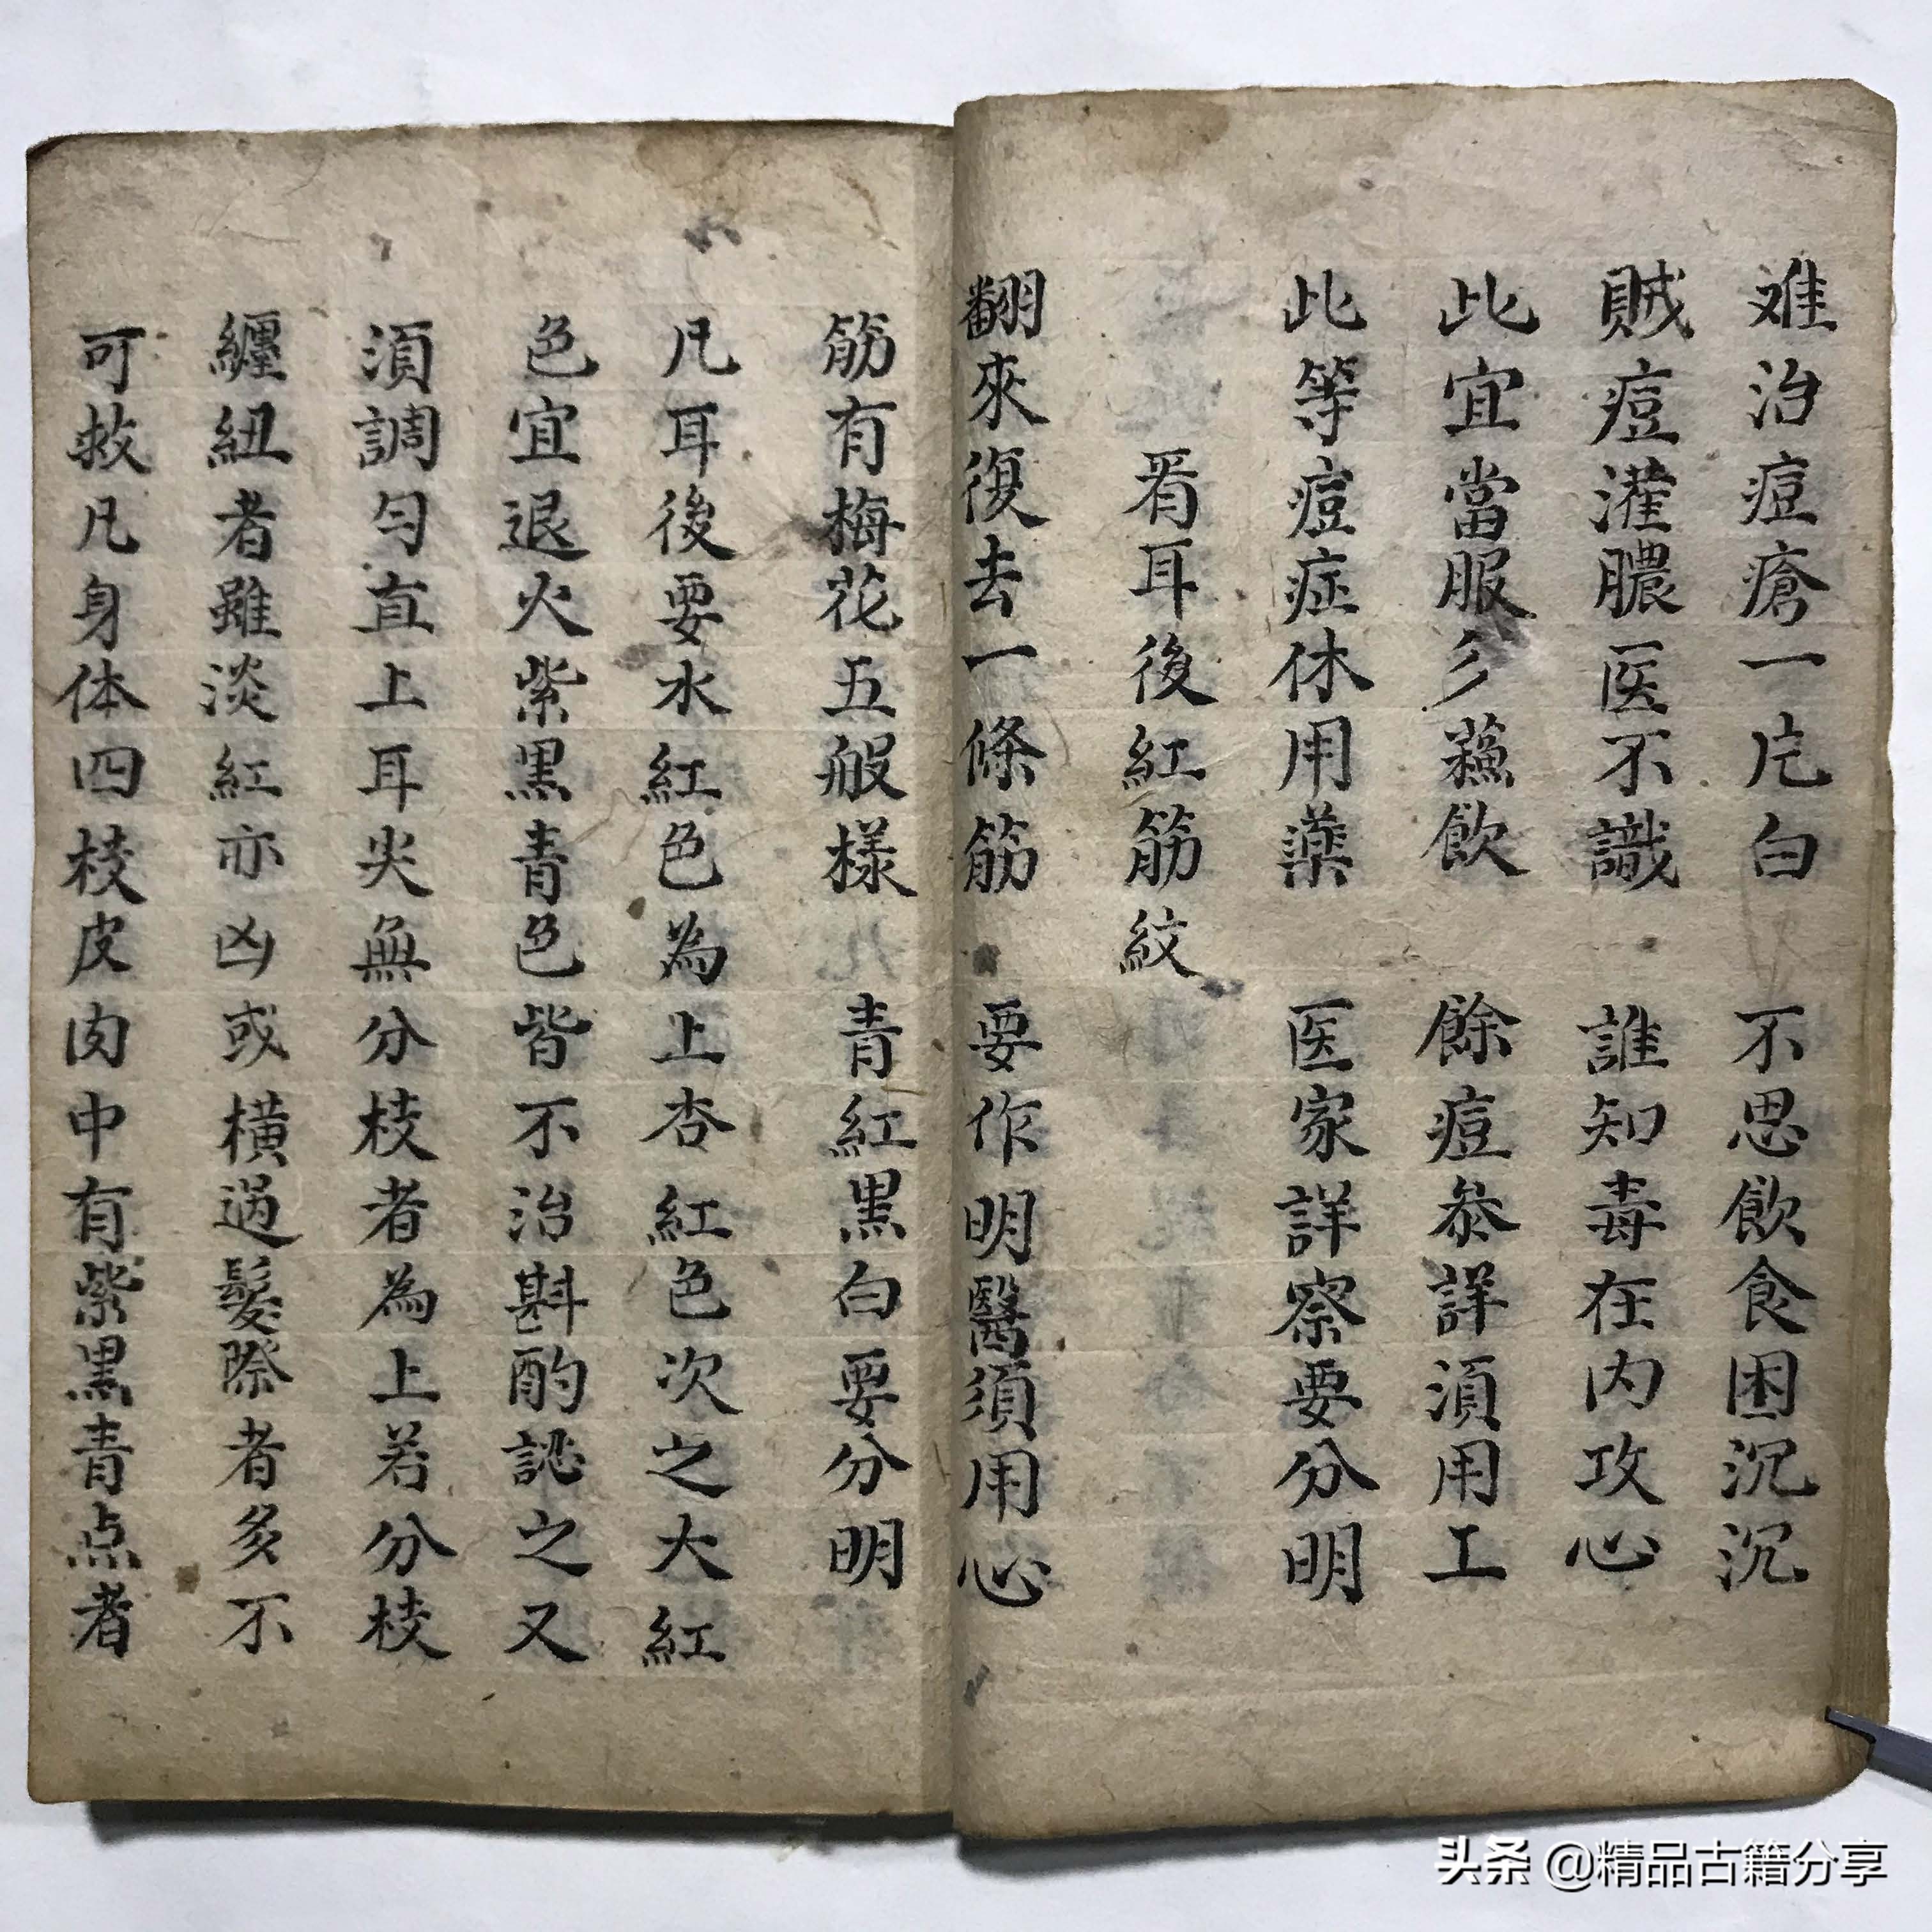 难治痘瘡一片白 不思飲食困沉沉
賊痘灌膿医不識 誰知毒在内攻心
此宜當服彡蘓飲 餘痘叅詳湏用工
此等痘症休用薬 医家詳察要分明
看耳後紅筋紋
翻來復去一條筋 要作明醫須用心
筋有梅花五般樣 青紅黑白要分明
凡耳後要水紅色為上杏紅色次之大紅
色宜退火紫黑青色皆不治斟酌訛之又
湏調匀直上耳尖無分枝者為上若分枝
纏紐者雖淡紅亦凶或橫過髮際者多不
可救凡身体四枝皮肉中有紫黑青点者
头条 @精品古籍分享